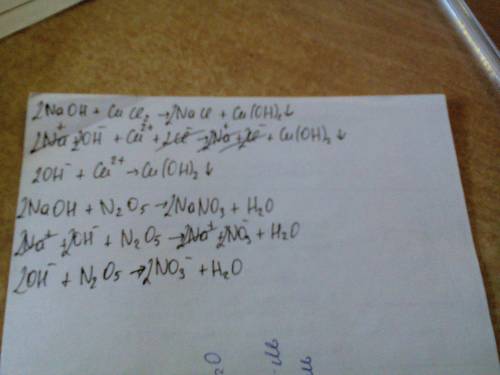 2NaOH + CuCl₂ → 2NaCl + Cu(OH)₂↓
2Na⁺ + 2OH⁻ + Cu²⁺ + 2Cl⁻ → 2Na⁺ + 2Cl⁻ + Cu(OH)₂↓
2OH⁻ + Cu²⁺ → Cu(OH)₂↓
2NaOH + N₂O₅ → 2NaNO₃ + H₂O
2Na⁺ + 2OH⁻ + N₂O₅ → 2Na⁺ + 2NO₃⁻ + H₂O
2OH⁻ + N₂O₅ → 2NO₃⁻ + H₂O